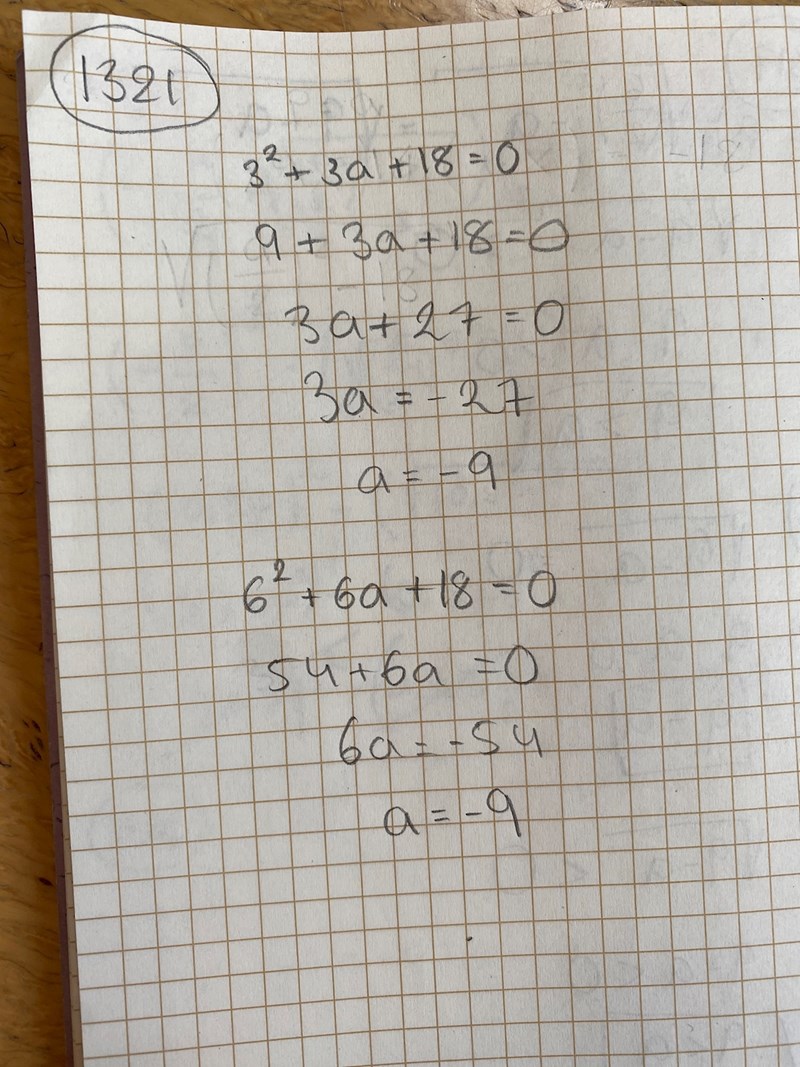 1321
3² + 3a + 18 = 0
9 + 3a + 18 = 0
3a + 27 = 0
3a = -27
a = -9
6² + 6a + 18 = 0
54 + 6a = 0
6a = -54
a = -9